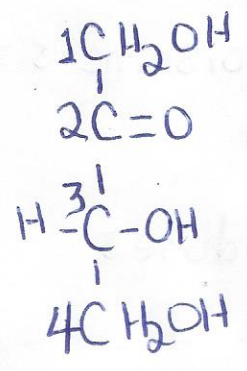 1CH2OH
2C=O
3
H-C-OH
4CH2OH